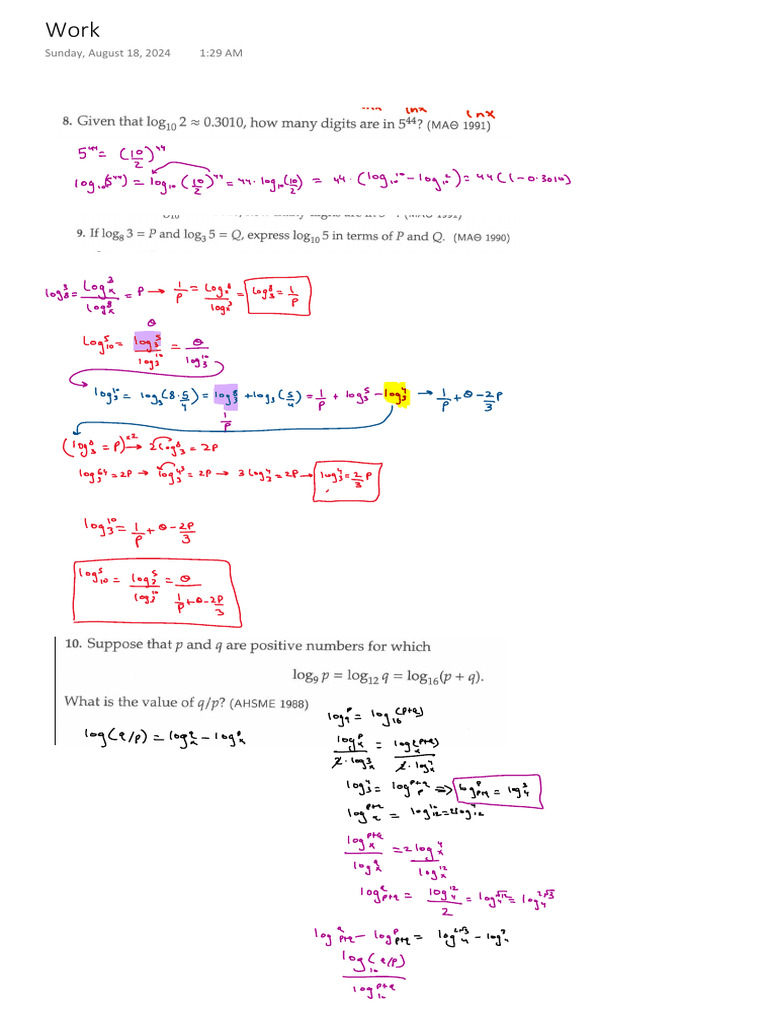 Work
Sunday, August 18, 2024 1:29 AM
lnx lnx
8. Given that log₁₀ 2 ≈ 0.3010, how many digits are in 5⁴⁴? (MAΘ 1991)
5⁴⁴ = (10/2)⁴⁴
log₁₀(5⁴⁴) = log₁₀(10/2)⁴⁴ = 44·log₁₀(10/2) = 44·(log₁₀10 − log₁₀2) = 44(1−0.3010)
9. If log₈ 3 = P and log₃ 5 = Q, express log₁₀ 5 in terms of P and Q. (MAΘ 1990)
log₈3 = logₓ3/logₓ8 = P → 1/P = logₓ8/logₓ3 = log₃8 = 1/P
Θ
log₁₀5 = log₃5/log₃10 = Θ/log₃10
log₃10 = log₃(8·5/4) = log₃8 + log₃(5/4) = 1/P + log₃5 − log₃4 → 1/P + Θ − 2P/3
1/P
(log₃8 = P)ˣ² → 2log₃8 = 2P
log₃64 = 2P → log₃4³ = 2P → 3log₃4 = 2P → log₃4 = 2/3 P
log₃10 = 1/P + Θ − 2P/3
log₁₀5 = log₃5/log₃10 = Θ/(1/P + Θ − 2P/3)
10. Suppose that p and q are positive numbers for which
log₉ p = log₁₂ q = log₁₆(p + q).
What is the value of q/p? (AHSME 1988)
log₉p = log₁₆(p+q)
log(q/p) = logₓq − logₓp
logₓp/(2·logₓ3) = logₓ(p+q)/(2·logₓ4)
log₃4 = logₚ(p+q) ⇒ logₚ₊qp = log₄3
log_q(p+q) = log₁₂16 = 2log₁₂4
logₓ(p+q)/logₓq = 2logₓ4/logₓ12
logₚ₊q q = log₄12/2 = log₄√12 = log₄2√3
logₚ₊q q − logₚ₊q p = log₄2√3 − log₄3
log₁₀(q/p)/log₁₀(p+q)